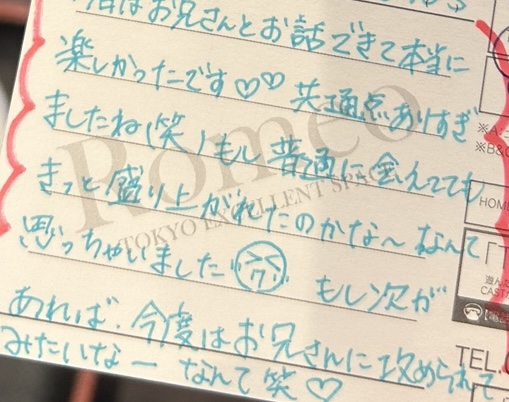 はお兄さんとお話できて本当に
楽しかったです♡♡ 共通点ありすぎ
ましたね(笑)もし普通に会えてても
きっと盛り上がれたのかな〜なんて
思っちゃいました もし次が
あれば、今度はお兄さんに攻められて
みたいなー なんて笑♡
Romeo
TOKYO EXCELLENT SPA
HOME
TEL.